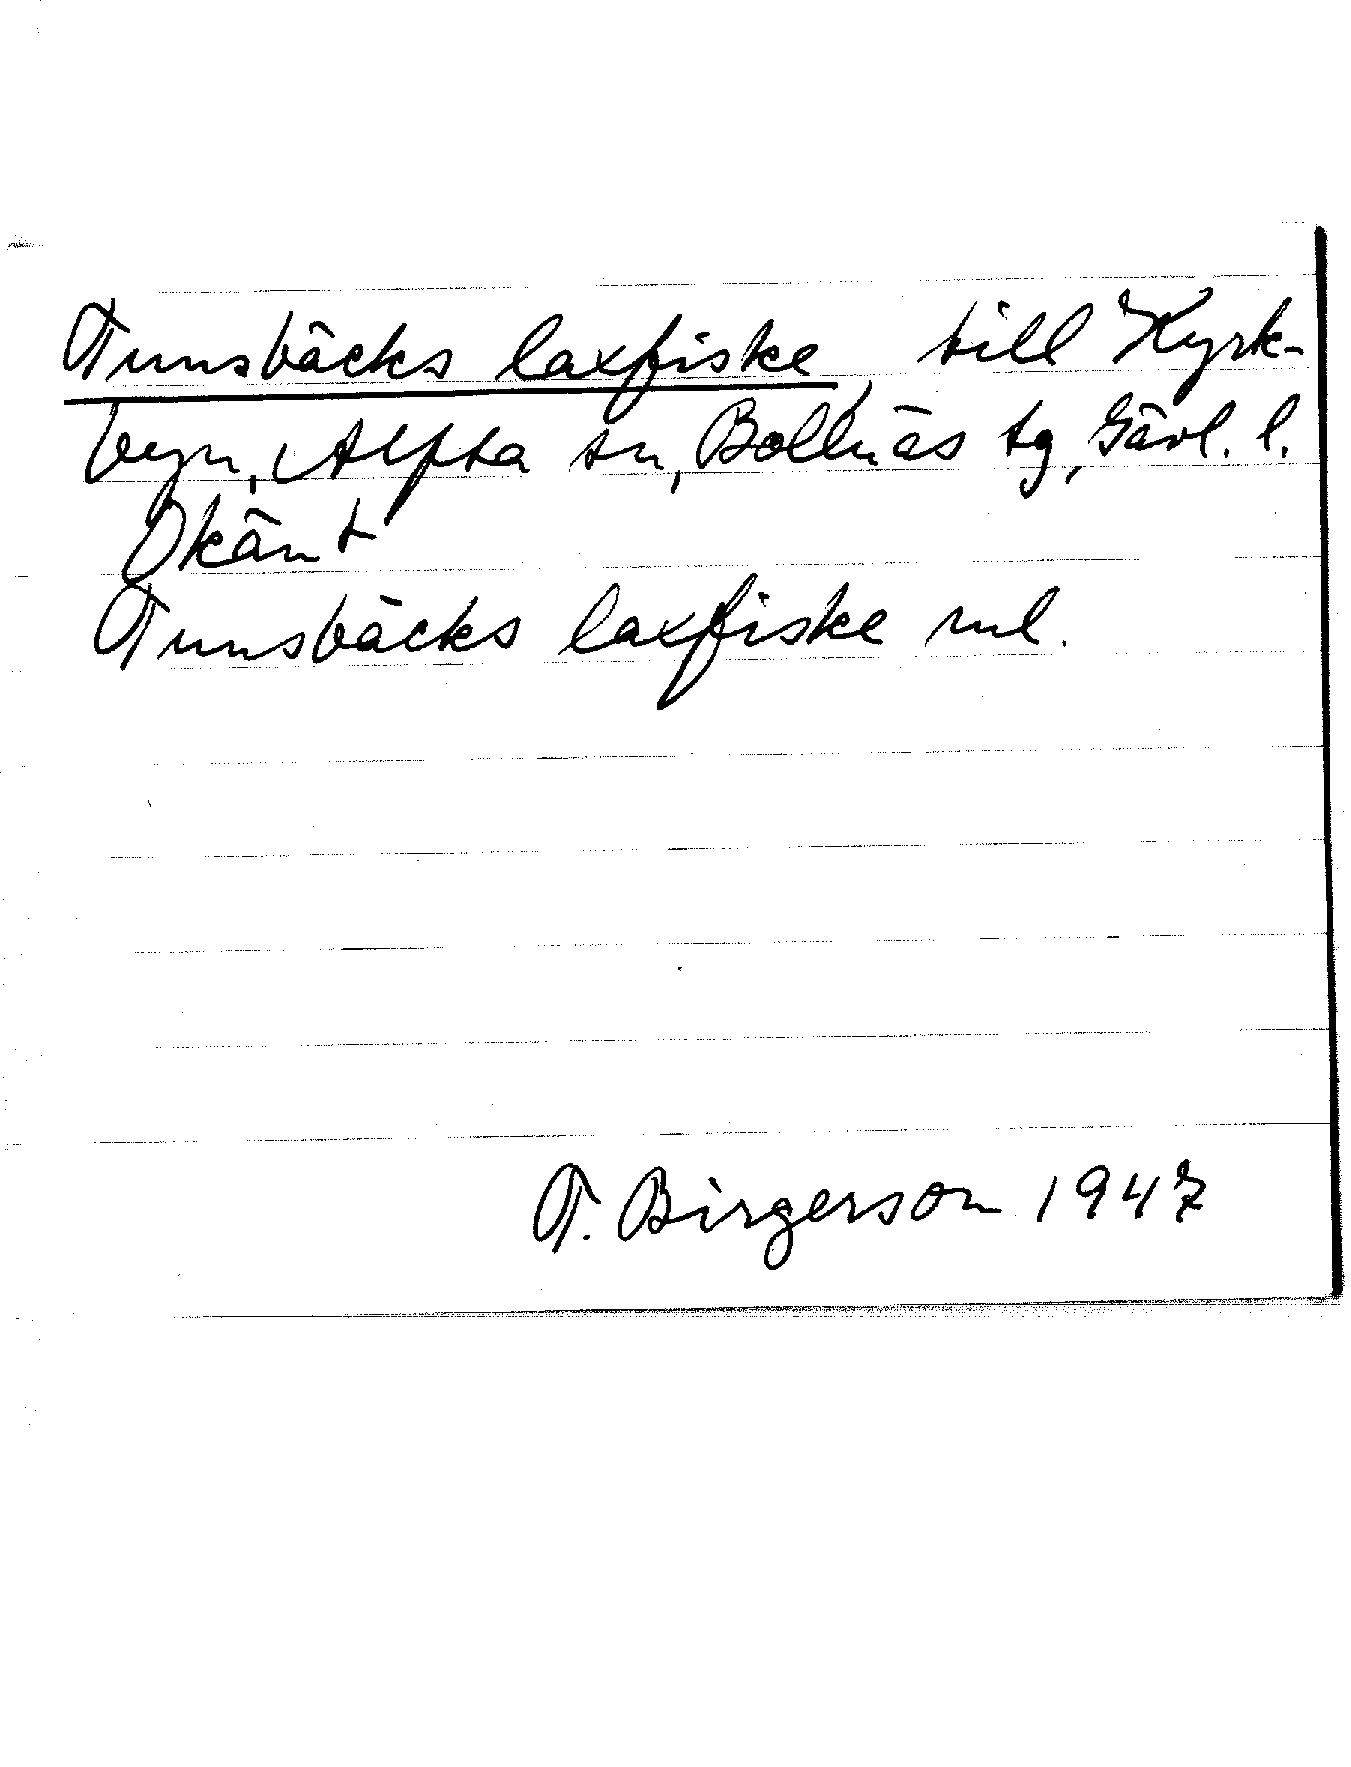 Tunsbäcks laxfiske, till Kyrk-
byn, Alfta sn, Bollnäs tg, Gävl. l.
Okänt
Tunsbäcks laxfiske rul.
T. Birgerson 1947